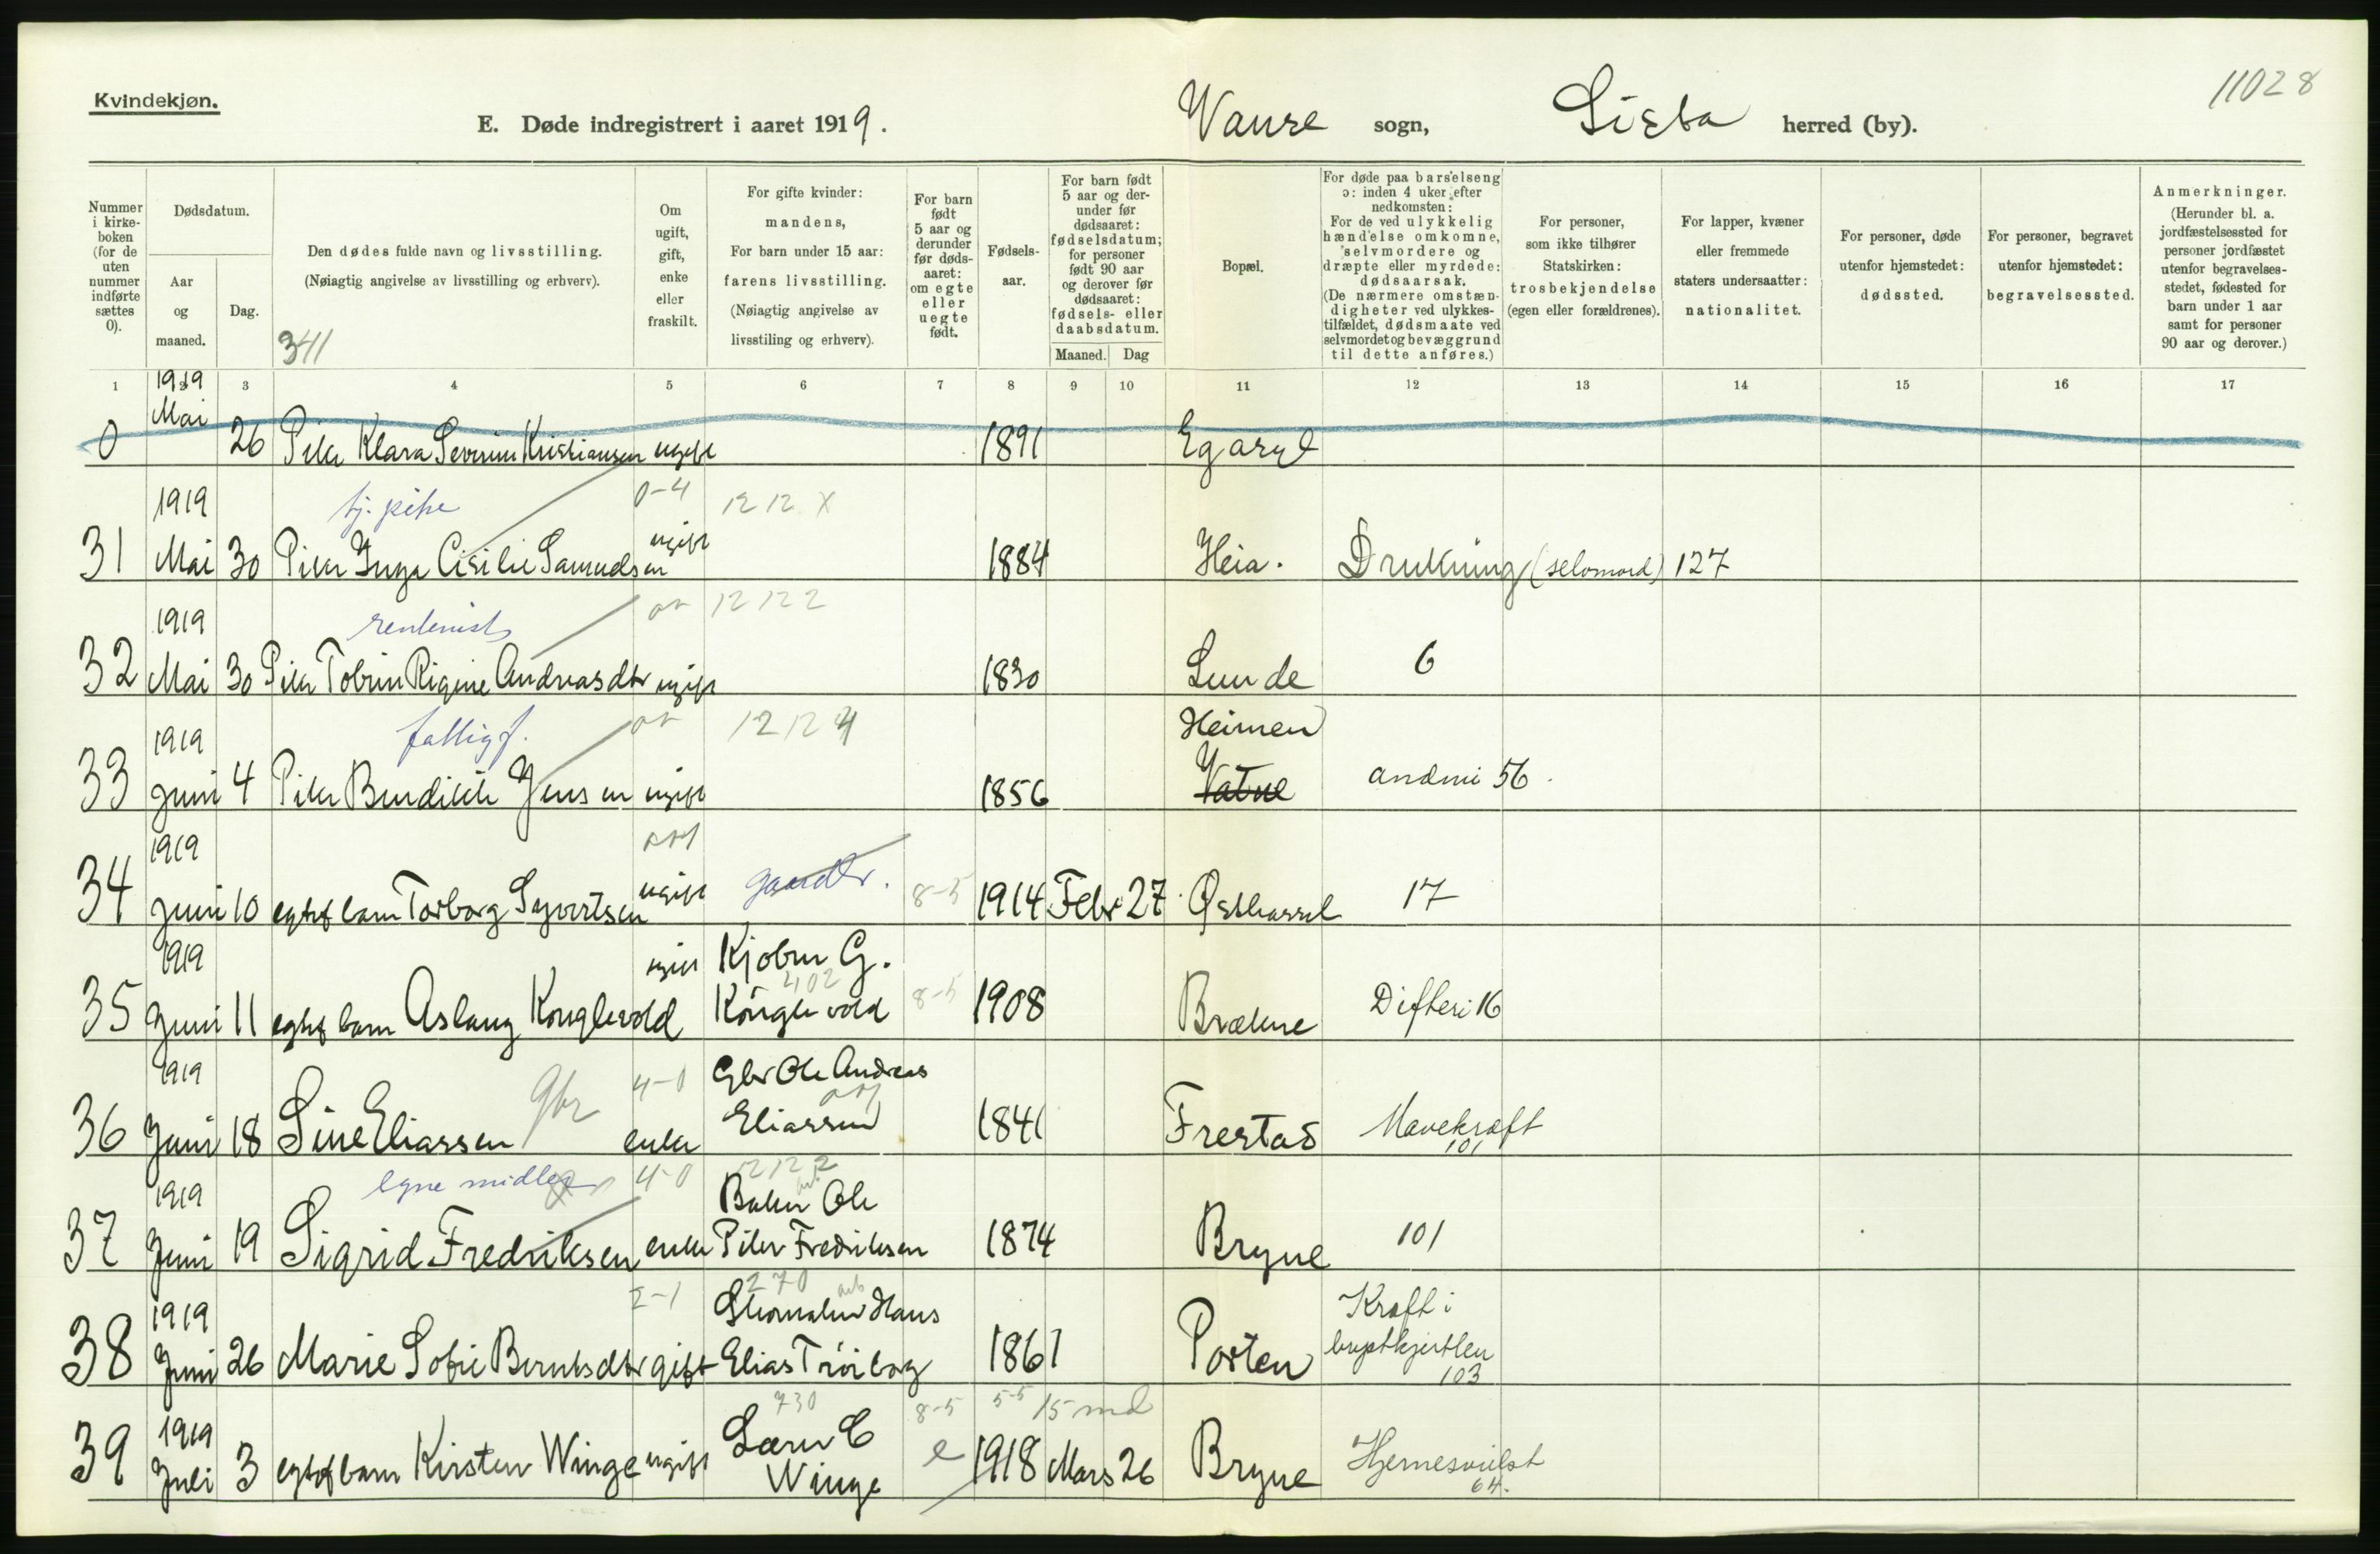 Kvindekjøn.
11028
E. Døde indregistrert i aaret 1919.
Vanse sogn, Lista herred (by).
Nummer i kirke-boken (for de uten nummer indførte sættes 0).
Dødsdatum.
Aar og maaned.
Dag.
Den dødes fulde navn og livsstilling.
(Nøiagtig angivelse av livsstilling og erhverv).
341
Om ugift, gift, enke eller fraskilt.
For gifte kvinder: mandens,
For barn under 15 aar: farens livsstilling.
(Nøiagtig angivelse av livsstiling og erhverv).
For barn født 5 aar og derunder før døds-aaret: om egte eller uegte født.
Fødsels-aar.
For barn født 5 aar og der-under før dødsaaret: fødselsdatum; for personer født 90 aar og derover før dødsaaret: fødsels- eller daabsdatum.
Maaned. Dag
Bopæl.
For døde paa barselseng ɔ: inden 4 uker efter nedkomsten:
For de ved ulykkelig hændelse omkomne, selvmordere og dræpte eller myrdede: dødsaarsak.
(De nærmere omstæn-digheter ved ulykkes-tilfældet, dødsmaate ved selvmordet og bevæggrund til dette anføres.)
For personer, som ikke tilhører Statskirken: trosbekjendelse (egen eller forældrenes).
For lapper, kvæner eller fremmede staters undersaatter: nationalitet.
For personer, døde utenfor hjemstedet: dødssted.
For personer, begravet utenfor hjemstedet: begravelsessted.
Anmerkninger.
(Herunder bl. a. jordfæstelsessted for personer jordfæstet utenfor begravelses-stedet, fødested for barn under 1 aar samt for personer 90 aar og derover.)
1 2 3 4 5 6 7 8 9 10 11 12 13 14 15 16 17
1919
0 Mai 26 Pike Klara Severine Kristiansen ugift 1891
1919 tj. pike 0-4 12 12 X
31 Mai 30 Pike Inga Cisilie Samuelsen ugift 1884 Heia. Drukning (selvmord) 127
1919 rentenist 12 12 2
32 Mai 30 Pike Tobine Rigine Andreasdtr ugift 1830 Lunde 6
1919 fattigf. 12 12 4 Heimen
33 Juni 4 Pike Bendikte Jensen ugift 1856 Vatne anæmi 56
1919 gaardbr.
34 Juni 10 egtef barn Torborg Syvertsen ugift 8-5 1914 Febr 27 Østhassel 17
1919 ugift Kjøbm G. 402
35 Juni 11 egtef barn Aslaug Konglevold Konglevold 8-5 1908 Brækne Difteri 16
1919 gbr 4-0 Gbr Ole Andreas
36 Juni 18 Sine Eliassen enke Eliassen 1841 Frestad Mavekræft 101
1919 egne midler 4-0 12 12 2 Baker Ole
37 Juni 19 Sigrid Fredriksen enke Peder Fredriksen 1874 Bryne 101
1919 2-1 270 Skomaker Hans
38 Juni 26 Marie Sofie Berntsdtr gift Elias Trøiborg 1861 Porten Kræft i brystkjertlen 103
1919 730 8-5 5-5 15 md
39 Juli 3 egtef barn Kirsten Winge ugift Lærer C Winge e 1918 Mars 26 Bryne Hjernesvulst 64.